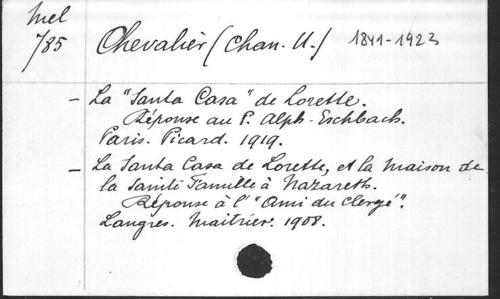 Mel
785
Chevalier (Chan. U.) 1841-1923
- La "Santa Casa" de Lorette.
Réponse au P. Alph. Eschbach.
Paris. Picard. 1919.
- La Santa Casa de Lorette, et la maison de
la Sainte Famille à Nazareth.
Réponse à l' "Ami du clergé".
Langres. Maitrier. 1908.